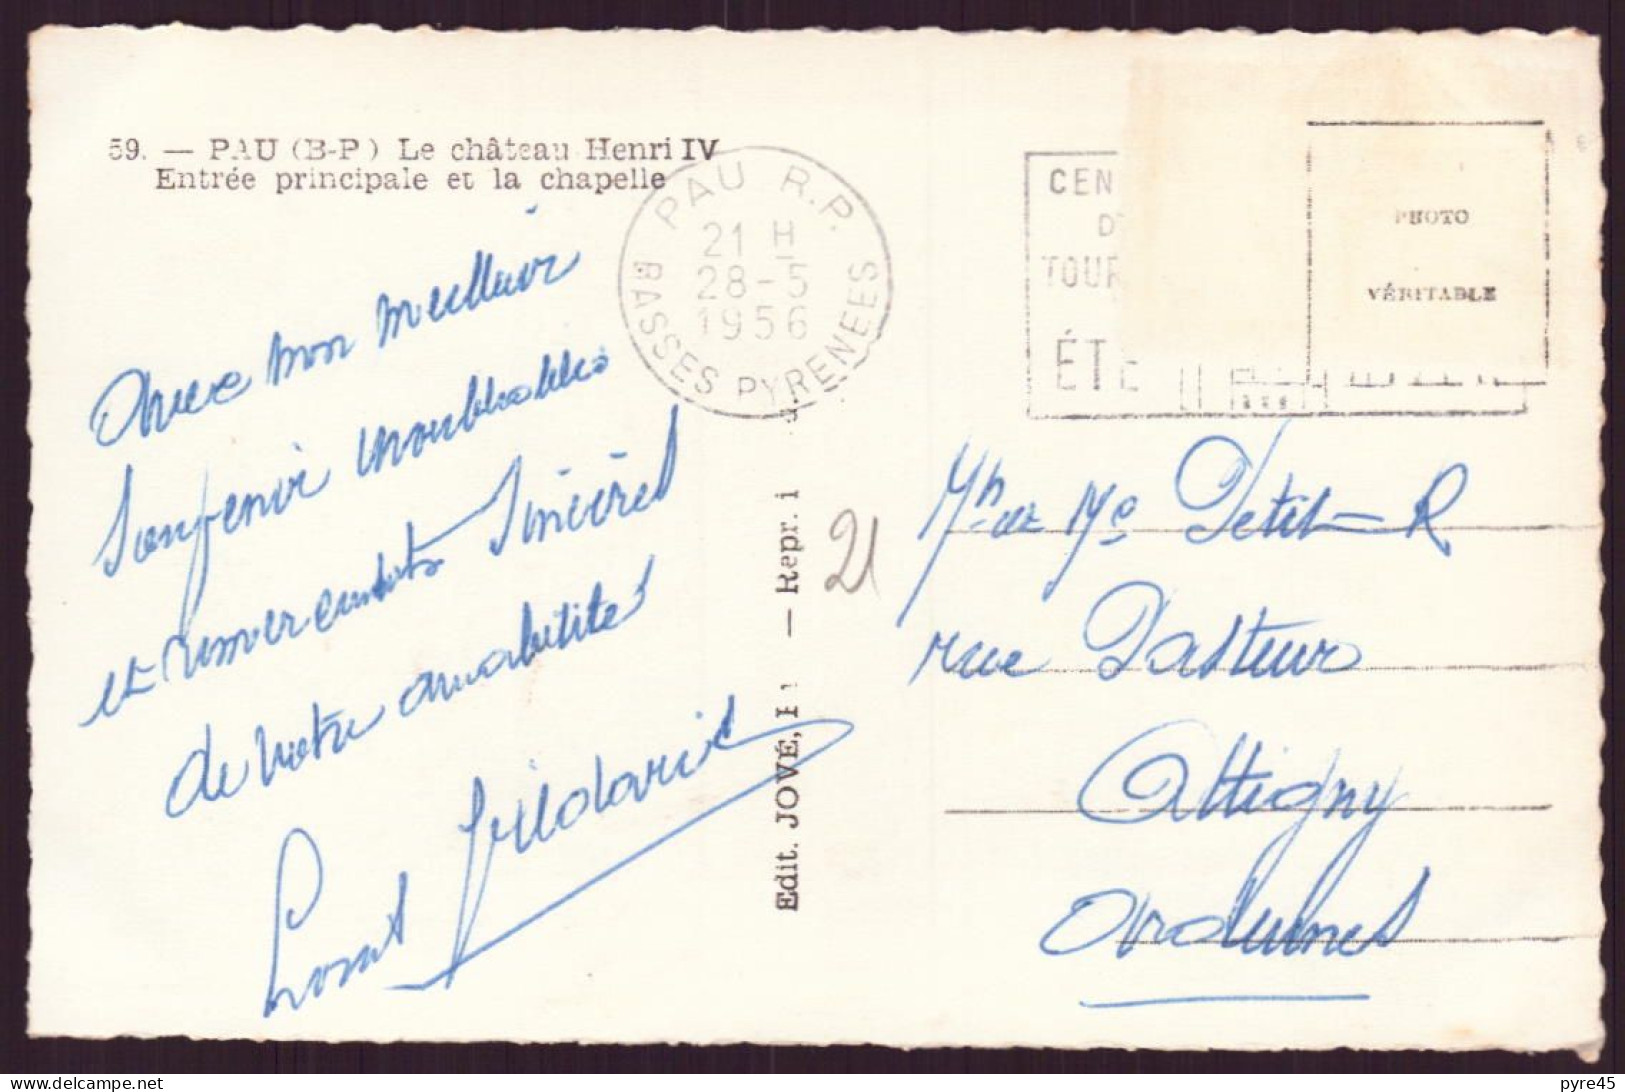 59. — PAU (B-P) Le château Henri IV
Entrée principale et la chapelle
PAU R.P.
21 H
28-5
1956
BASSES PYRENEES
CEN
D
TOUR
ÉTÉ
PHOTO
VÉRITABLE
Avec mon meilleur
Souvenir inoubliables
et remerciements Sincères
de votre amabilité
Edit. JOVÉ,
— Repr. i
21
Mr et Me Petit-R
rue Pasteur
Attigny
Ardennes
pyre45